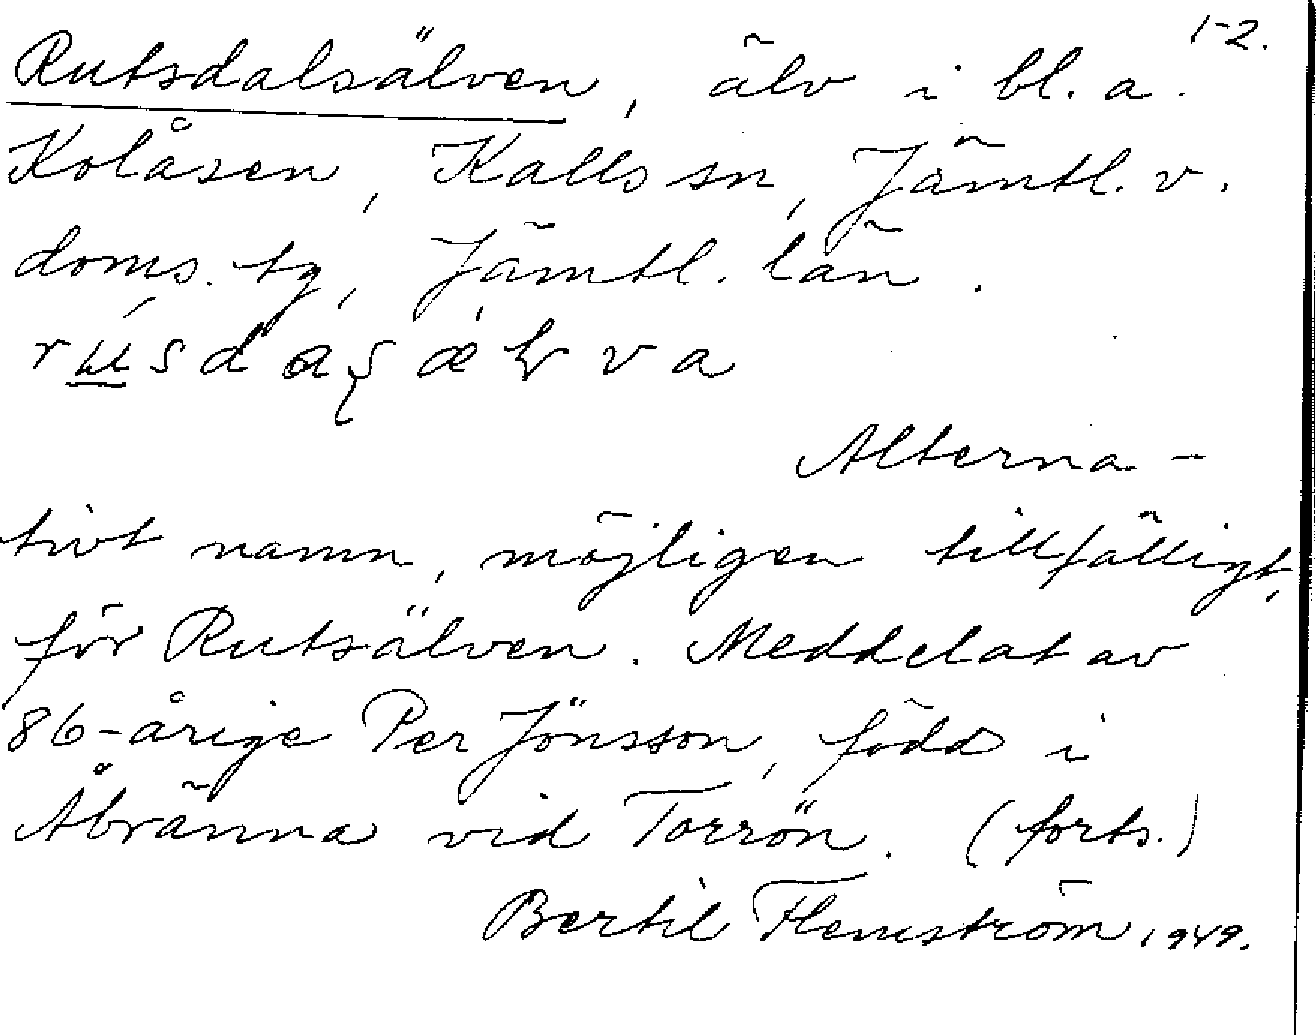 1-2.
Rutsdalsälven, älv i bl. a.
Kolåsen, Kalls sn, Jämtl. v.
doms. tg, Jämtl. län.
Alterna-
tivt namn, möjligen tillfälligt,
för Rutsälven. Meddelat av
86-årige Per Jönsson, född i
Åbränna vid Torrön. (forts.)
Bertil Flemström 1949.